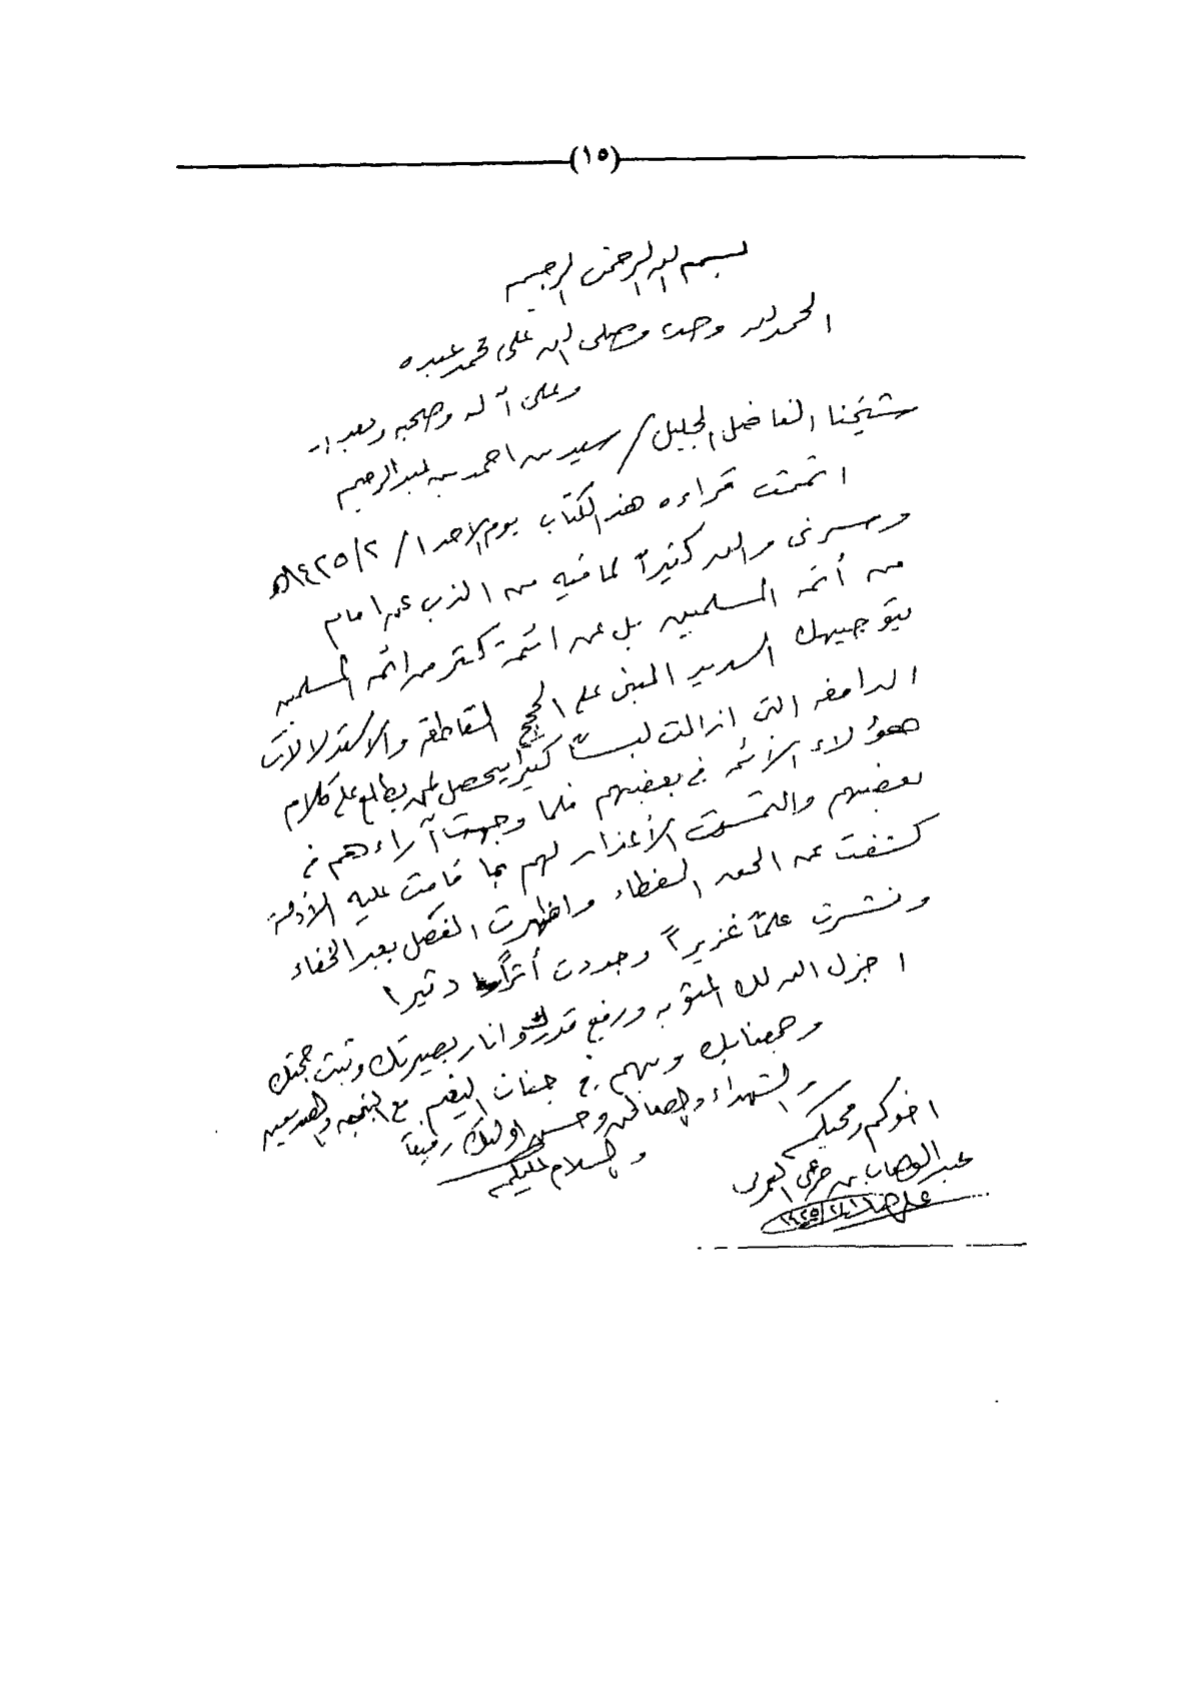 (١٥)
بسم الله الرحمن الرحيم
الحمد لله وحده وصلى الله على محمد عبده
وعلى آله وصحبه وبعد ..
شيخنا الفاضل الجليل / سعيد بن احمد بن عبدالرحيم
اتممت قراءه هذ الكتاب يوم الاحد ١/٢/١٤٢٥هـ
وسرني والله كثيراً لما فيه من الذب عن امام
من أئمه المسلمين بل عن ائمة كثر من ائمه المسلمين
بتوجيهك السديد المبنى على الحجج القاطعه والاستدلالات
الدامغه التى ازالت لبساً كبيراً يحصل لمن يطالع على كلام
هؤلاء الأئمه في بعضهم فلما وجهت آراءهم في
بعضهم والتمست الأعذار لهم بما قامت عليه الأدلة
كشفت عن الحق الغطاء واظهرت الفضل بعد الخفاء
ونشرت علماً غزيراً وجددت أثراً دثيرا
اجزل الله لك المثوبه ورفع قدرك وانار بصيرتك وثبت حجتك
وجمعنا بك وبهم في جنان النعيم مع النبيين والصديقين
والشهداء والصالحين وحسن اولئك رفيقاً
والسلام عليكم
اخوكم ومحبكم
عبدالوهاب بن مرعي العمري
١٤٢٥/٢/١